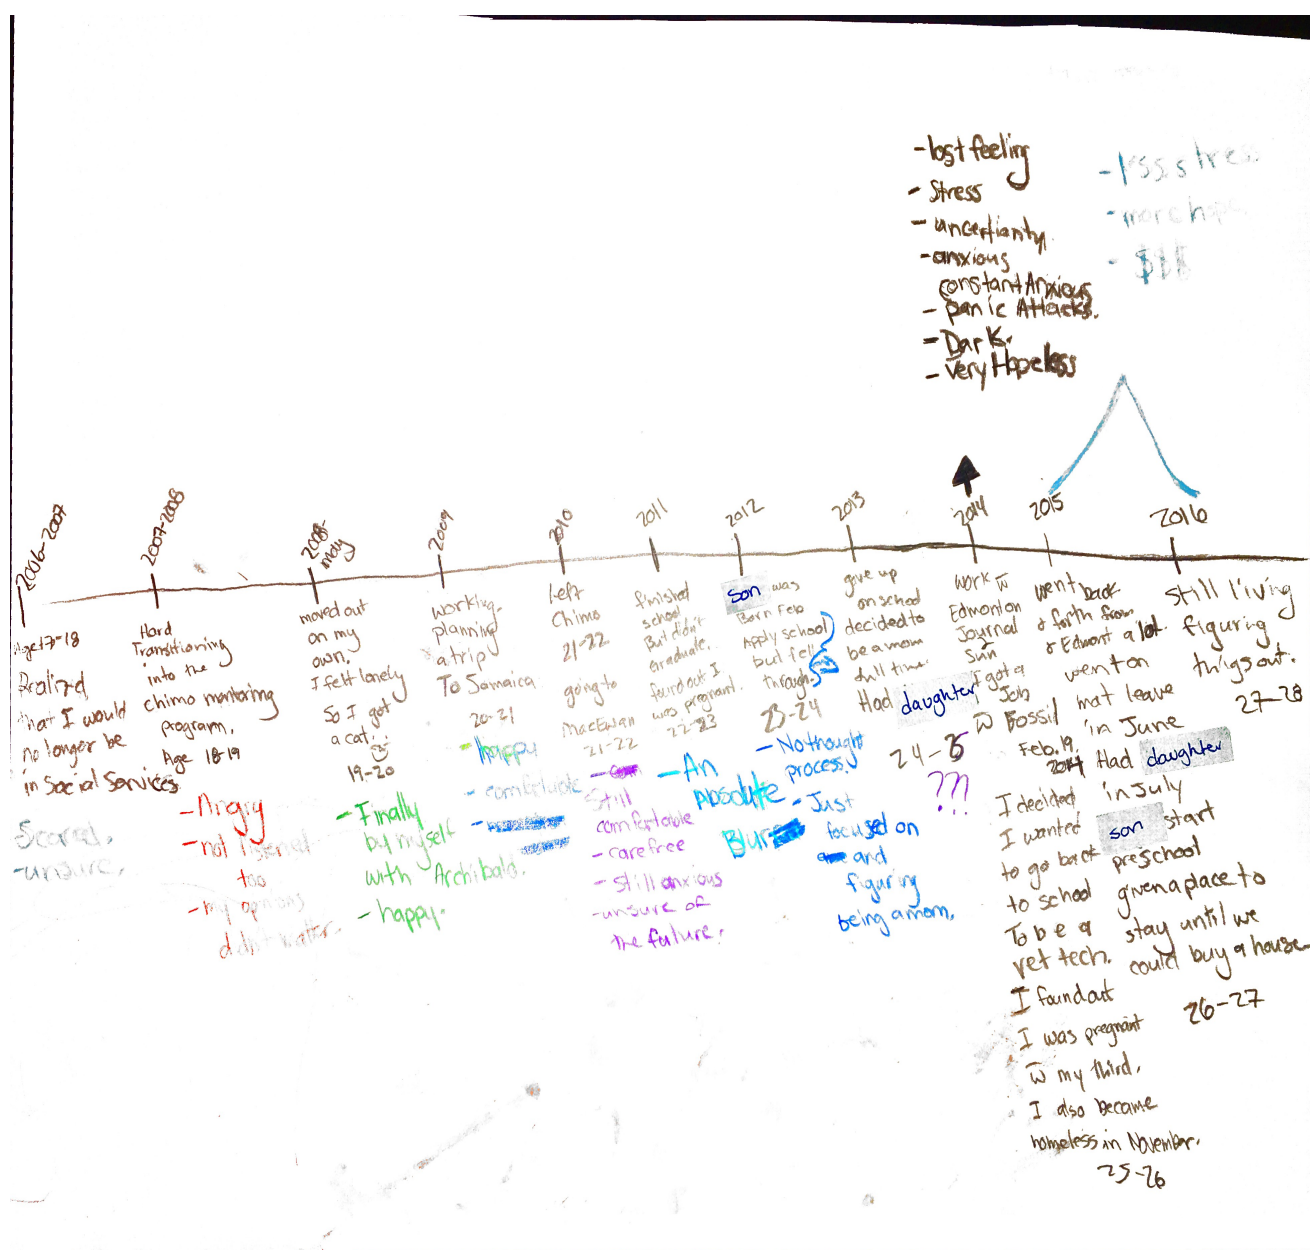 - lost feeling
- Stress
- uncertianty.
- anxious
constant Anxious
- panic Attacks.
- Dark.
- Very Hopeless
- less stress
- more hope
- $$$
2006-2007
Age 17-18
Realized
that I would
no longer be
in Social Services
- Scared,
- unsure,
2007-2008
Hard
Transitioning
into the
chimo montoring
program,
Age 18-19
- Angry
- not listened
too
- my opinions
didn't matter.
2008-
may
moved out
on my
own.
I felt lonely
So I got
a cat.
19-20
- Finally
by myself
with Archibald.
- happy.
2009
working.
planning
a trip
To Jamaica
20-21
- happy
- comfortable
2010
Left
Chimo
21-22
going to
MacEwan
21-22
Still
comfortable
- carefree
- still anxious
- unsure of
the future.
2011
finished
school
But didn't
Graduate.
found out I
was pregnant.
22-23
- An
Absolute
Blur
2012
son was
Born Feb
Apply school
but fell
through.
23-24
- No thought
process.
- Just
focused on
and
figuring
being a mom.
2013
give up
on school
decided to
be a mom
full time.
Had daughter
24-25
???
2014
work w
Edmonton
Journal
Sun
I got a
Job
w Fossil
Feb. 19,
2014
I decided
I wanted
to go back
to school
To be a
vet tech.
I found out
I was pregnant
w my third.
I also became
homeless in November.
25-26
2015
went back
& forth from
& Edmont a lot.
went on
mat leave
in June
Had daughter
in July
son start
preschool
given a place to
stay until we
could buy a house
26-27
2016
still living
figuring
things out.
27-28